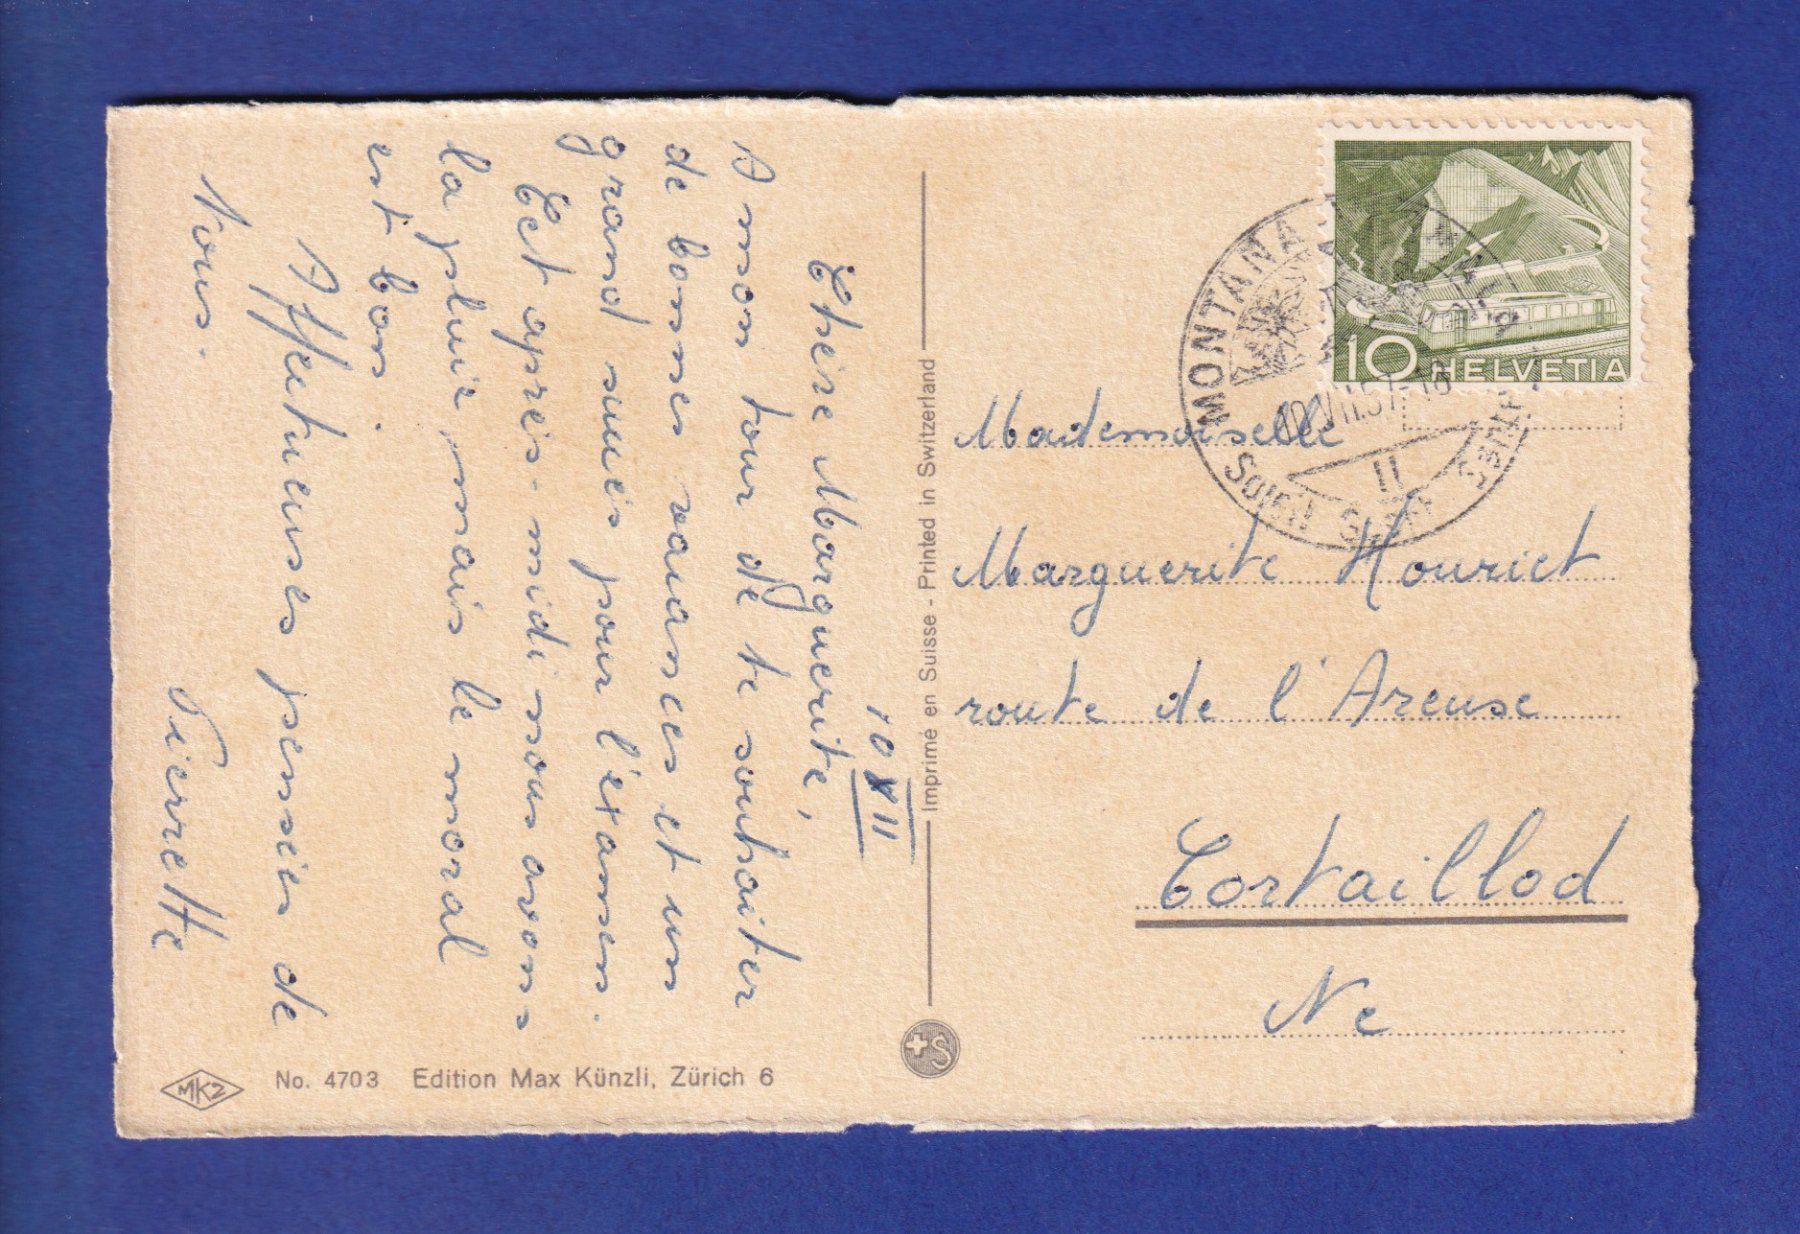 10 VII
Chère Marguerite,
A mon tour de te souhaiter
de bonnes vacances et un
grand succès pour l'examen.
Cet après-midi nous avons
la pluie mais le moral
est bon.
Affectueuses pensées de
Nous.
Pierrette
No. 4703 Edition Max Künzli, Zürich 6
MK2
Imprimé en Suisse - Printed in Switzerland
+S
10 HELVETIA
MONTANA
II
Mademoiselle
Marguerite Houriet
route de l'Areuse
Cortaillod
Ne